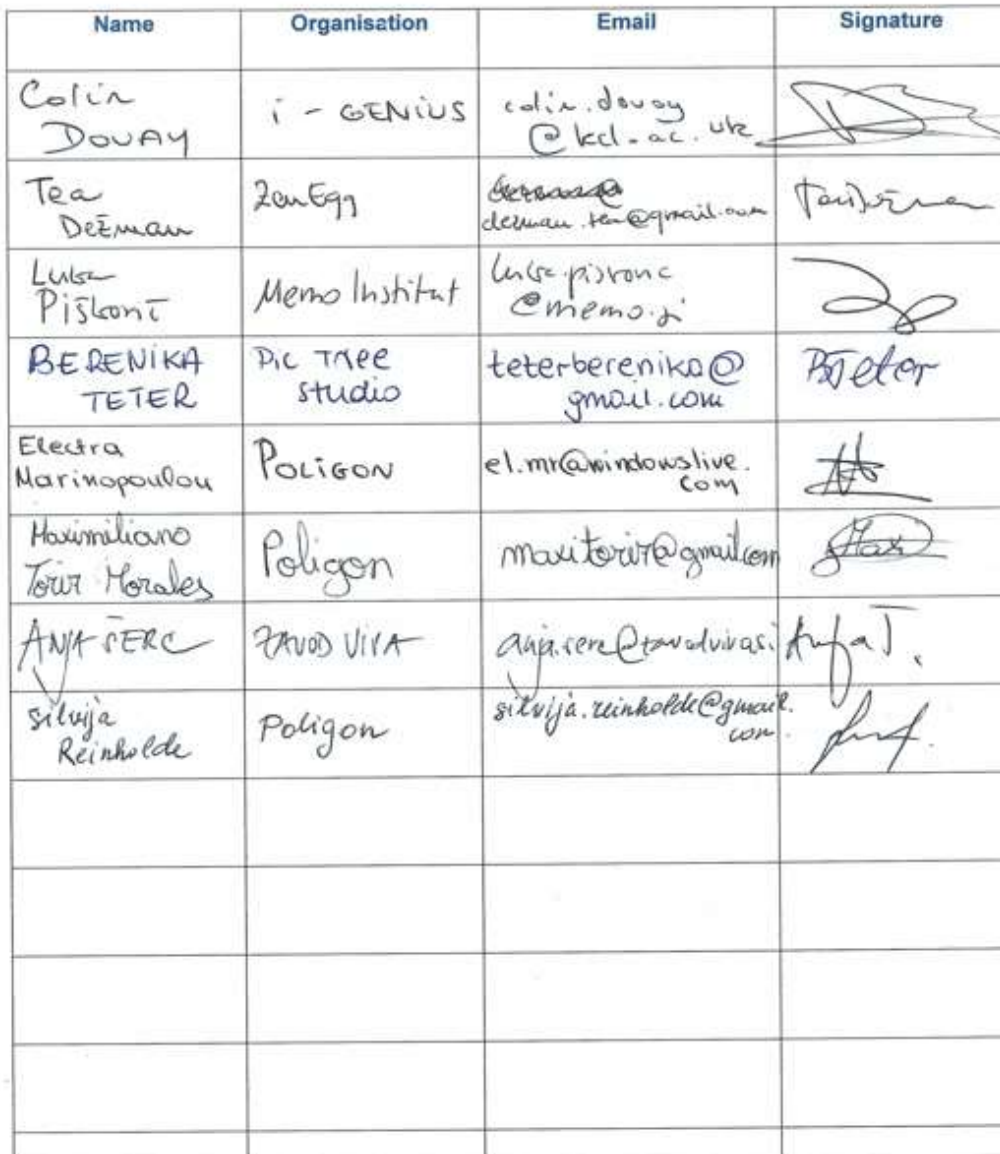 Name Organisation Email Signature
Colin
DOUAY
i - GENIUS
colin.douay
@kcl.ac.uk
Tea
DeŽman
ZenEgg
dezman.tea@gmail.com
Luka
Piškorič
Memo Institut
@memo.si
BERENIKA
TETER
Pic TRee
studio
teterberenika@
gmail.com
BTeter
Electra
Marinopoulou
POLIGON
el.mr@windowslive.
com
Maximiliano
Torir Morales
Poligon
maxitorir@gmail.com
Maxi
ANJA ŠERC
ZAVOD VIVA
Anja Š.
silvija
Reinholde
Poligon
silvija.reinholde@gmail.
com